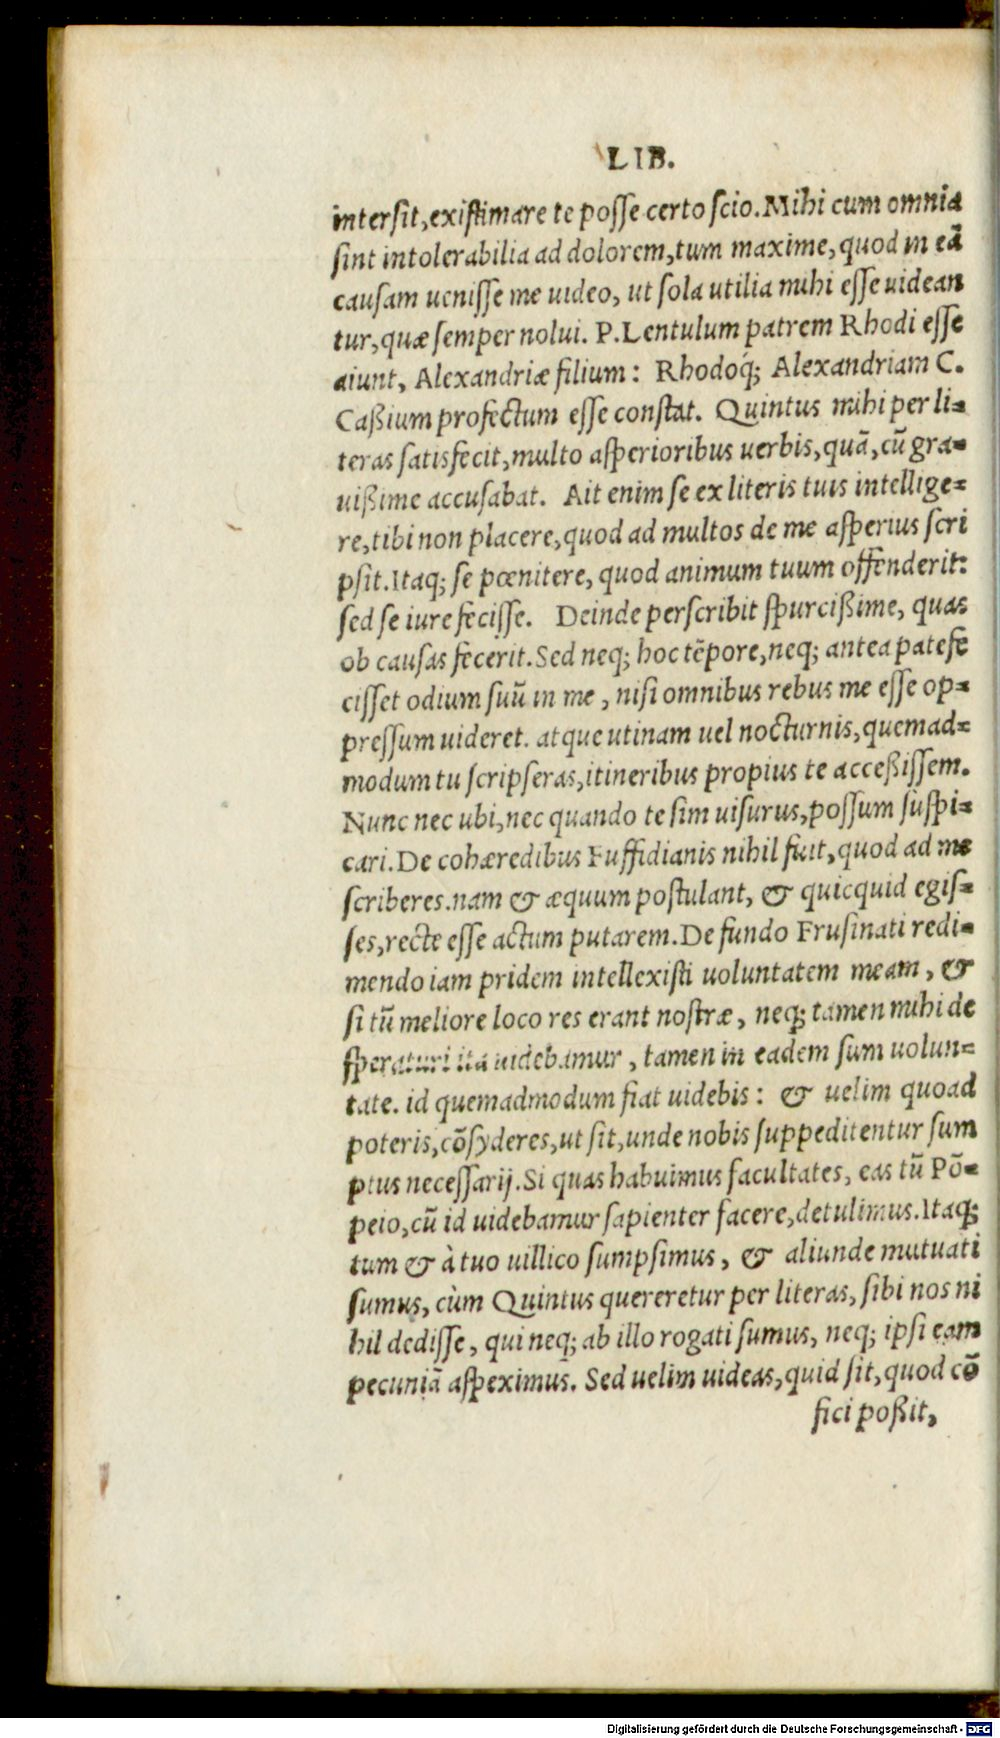 LIB.
intersit, existimare te posse certo scio. Mihi cum omnia
sint intolerabilia ad dolorem, tum maxime, quod in eã
causam uenisse me uideo, ut sola utilia mihi esse uidean
tur, quæ semper nolui. P. Lentulum patrem Rhodi esse
aiunt, Alexandriæ filium: Rhodoq́; Alexandriam C.
Caßium profectum esse constat. Quintus mihi per li-
teras satisfecit, multo asperioribus uerbis, quã, cũ gra-
uißime accusabat. Ait enim se ex literis tuis intellige-
re, tibi non placere, quod ad multos de me asperius scri
psit. Itaq; se pœnitere, quod animum tuum offenderit:
sed se iure fecisse. Deinde perscribit spurcißime, quas
ob causas fecerit. Sed neq; hoc tẽpore, neq; antea patefe
cisset odium suũ in me, nisi omnibus rebus me esse op-
pressum uideret. atque utinam uel nocturnis, quemad-
modum tu scripseras, itineribus propius te acceßissem.
Nunc nec ubi, nec quando te sim uisurus, possum suspi-
cari. De cohæredibus Fuffidianis nihil fuit, quod ad me
scriberes. nam & æquum postulant, & quicquid egis-
ses, recte esse actum putarem. De fundo Frusinati redi-
mendo iam pridem intellexisti uoluntatem meam, &
si tũ meliore loco res erant nostræ, neq; tamen mihi de
speraturi ita uidebamur, tamen in eadem sum uolun-
tate. id quemadmodum fiat uidebis: & uelim quoad
poteris, cõsyderes, ut sit, unde nobis suppeditentur sum
ptus necessarij. Si quas habuimus facultates, eas tũ Põ-
peio, cũ id uidebamur sapienter facere, detulimus. Itaq;
tum & à tuo uillico sumpsimus, & aliunde mutuati
sumus, cùm Quintus quereretur per literas, sibi nos ni
hil dedisse, qui neq; ab illo rogati sumus, neq; ipsi eam
pecuniã aspeximus. Sed uelim uideas, quid sit, quod cõ
fici poßit,
Digitalisierung gefördert durch die Deutsche Forschungsgemeinschaft - DFG